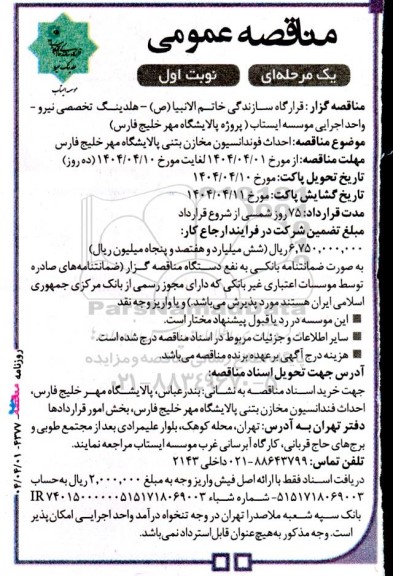 مناقصه عمومی
یک مرحله‌ای
نوبت اول
موسسه ایستاب
مناقصه گزار : قرارگاه سازندگی خاتم الانبیا (ص) - هلدینگ تخصصی نیرو -
واحد اجرایی موسسه ایستاب ( پروژه پالایشگاه مهر خلیج فارس)
موضوع مناقصه: احداث فوندانسیون مخازن بتنی پالایشگاه مهر خلیج فارس
مهلت مناقصه: از مورخ ۱۴۰۴/۰۴/۰۱ لغایت مورخ ۱۴۰۴/۰۴/۱۰ (ده روز)
تاریخ تحویل پاکت: مورخ ۱۴۰۴/۰۴/۱۰
تاریخ گشایش پاکت: مورخ ۱۴۰۴/۰۴/۱۱
مدت قرارداد: ۷۵ روز شمسی از شروع قرارداد
مبلغ تضمین شرکت در فرایند ارجاع کار:
۶,۷۵۰,۰۰۰,۰۰۰ ریال (شش میلیارد و هفتصد و پنجاه میلیون ریال)
به صورت ضمانتنامه بانکی به نفع دستگاه مناقصه گزار (ضمانتنامه‌های صادره
توسط موسسات اعتباری غیر بانکی که دارای مجوز رسمی از بانک مرکزی جمهوری
اسلامی ایران هستند مورد پذیرش می‌باشد) و یا واریز وجه نقد
این موسسه در رد یا قبول پیشنهاد مختار است.
سایر اطلاعات و جزئیات مربوط در اسناد مناقصه درج شده است.
هزینه درج آگهی بر عهده برنده مناقصه می‌باشد.
آدرس جهت تحویل اسناد مناقصه:
جهت خرید اسناد مناقصه به نشانی: بندرعباس، پالایشگاه مهر خلیج فارس،
احداث فندانسیون مخازن بتنی پالایشگاه مهر خلیج فارس، بخش امور قراردادها
دفتر تهران به آدرس: تهران، محله کوهک، بلوار علیمرادی بعد از مجتمع طوبی و
برج‌های حاج قربانی، کارگاه آبرسانی غرب موسسه ایستاب مراجعه نمایند.
تلفن تماس: ۸۸۶۴۳۷۹۹-۰۲۱ داخلی ۲۱۴۳
دریافت اسناد فقط با ارائه اصل فیش واریز وجه به مبلغ ۲,۰۰۰,۰۰۰ ریال به حساب
۵۱۵۱۷۱۸۰۶۹۰۰۳- شماره شباء IR ۷۴۰۱۵۰۰۰۰۰۰۵۱۵۱۷۱۸۰۶۹۰۰۳
بانک سپه شعبه ملاصدرا تهران در وجه تنخواه درآمد واحد اجرایی امکان پذیر
است. وجه مذکور به هیچ عنوان قابل استرداد نمی‌باشد.
روزنامه مناقصه ۴۳۷۷ - ۰۴/۰۴/۰۱
ParsNamadData
۰۲۱-۸۸۳۴۹۶۷۰-۵